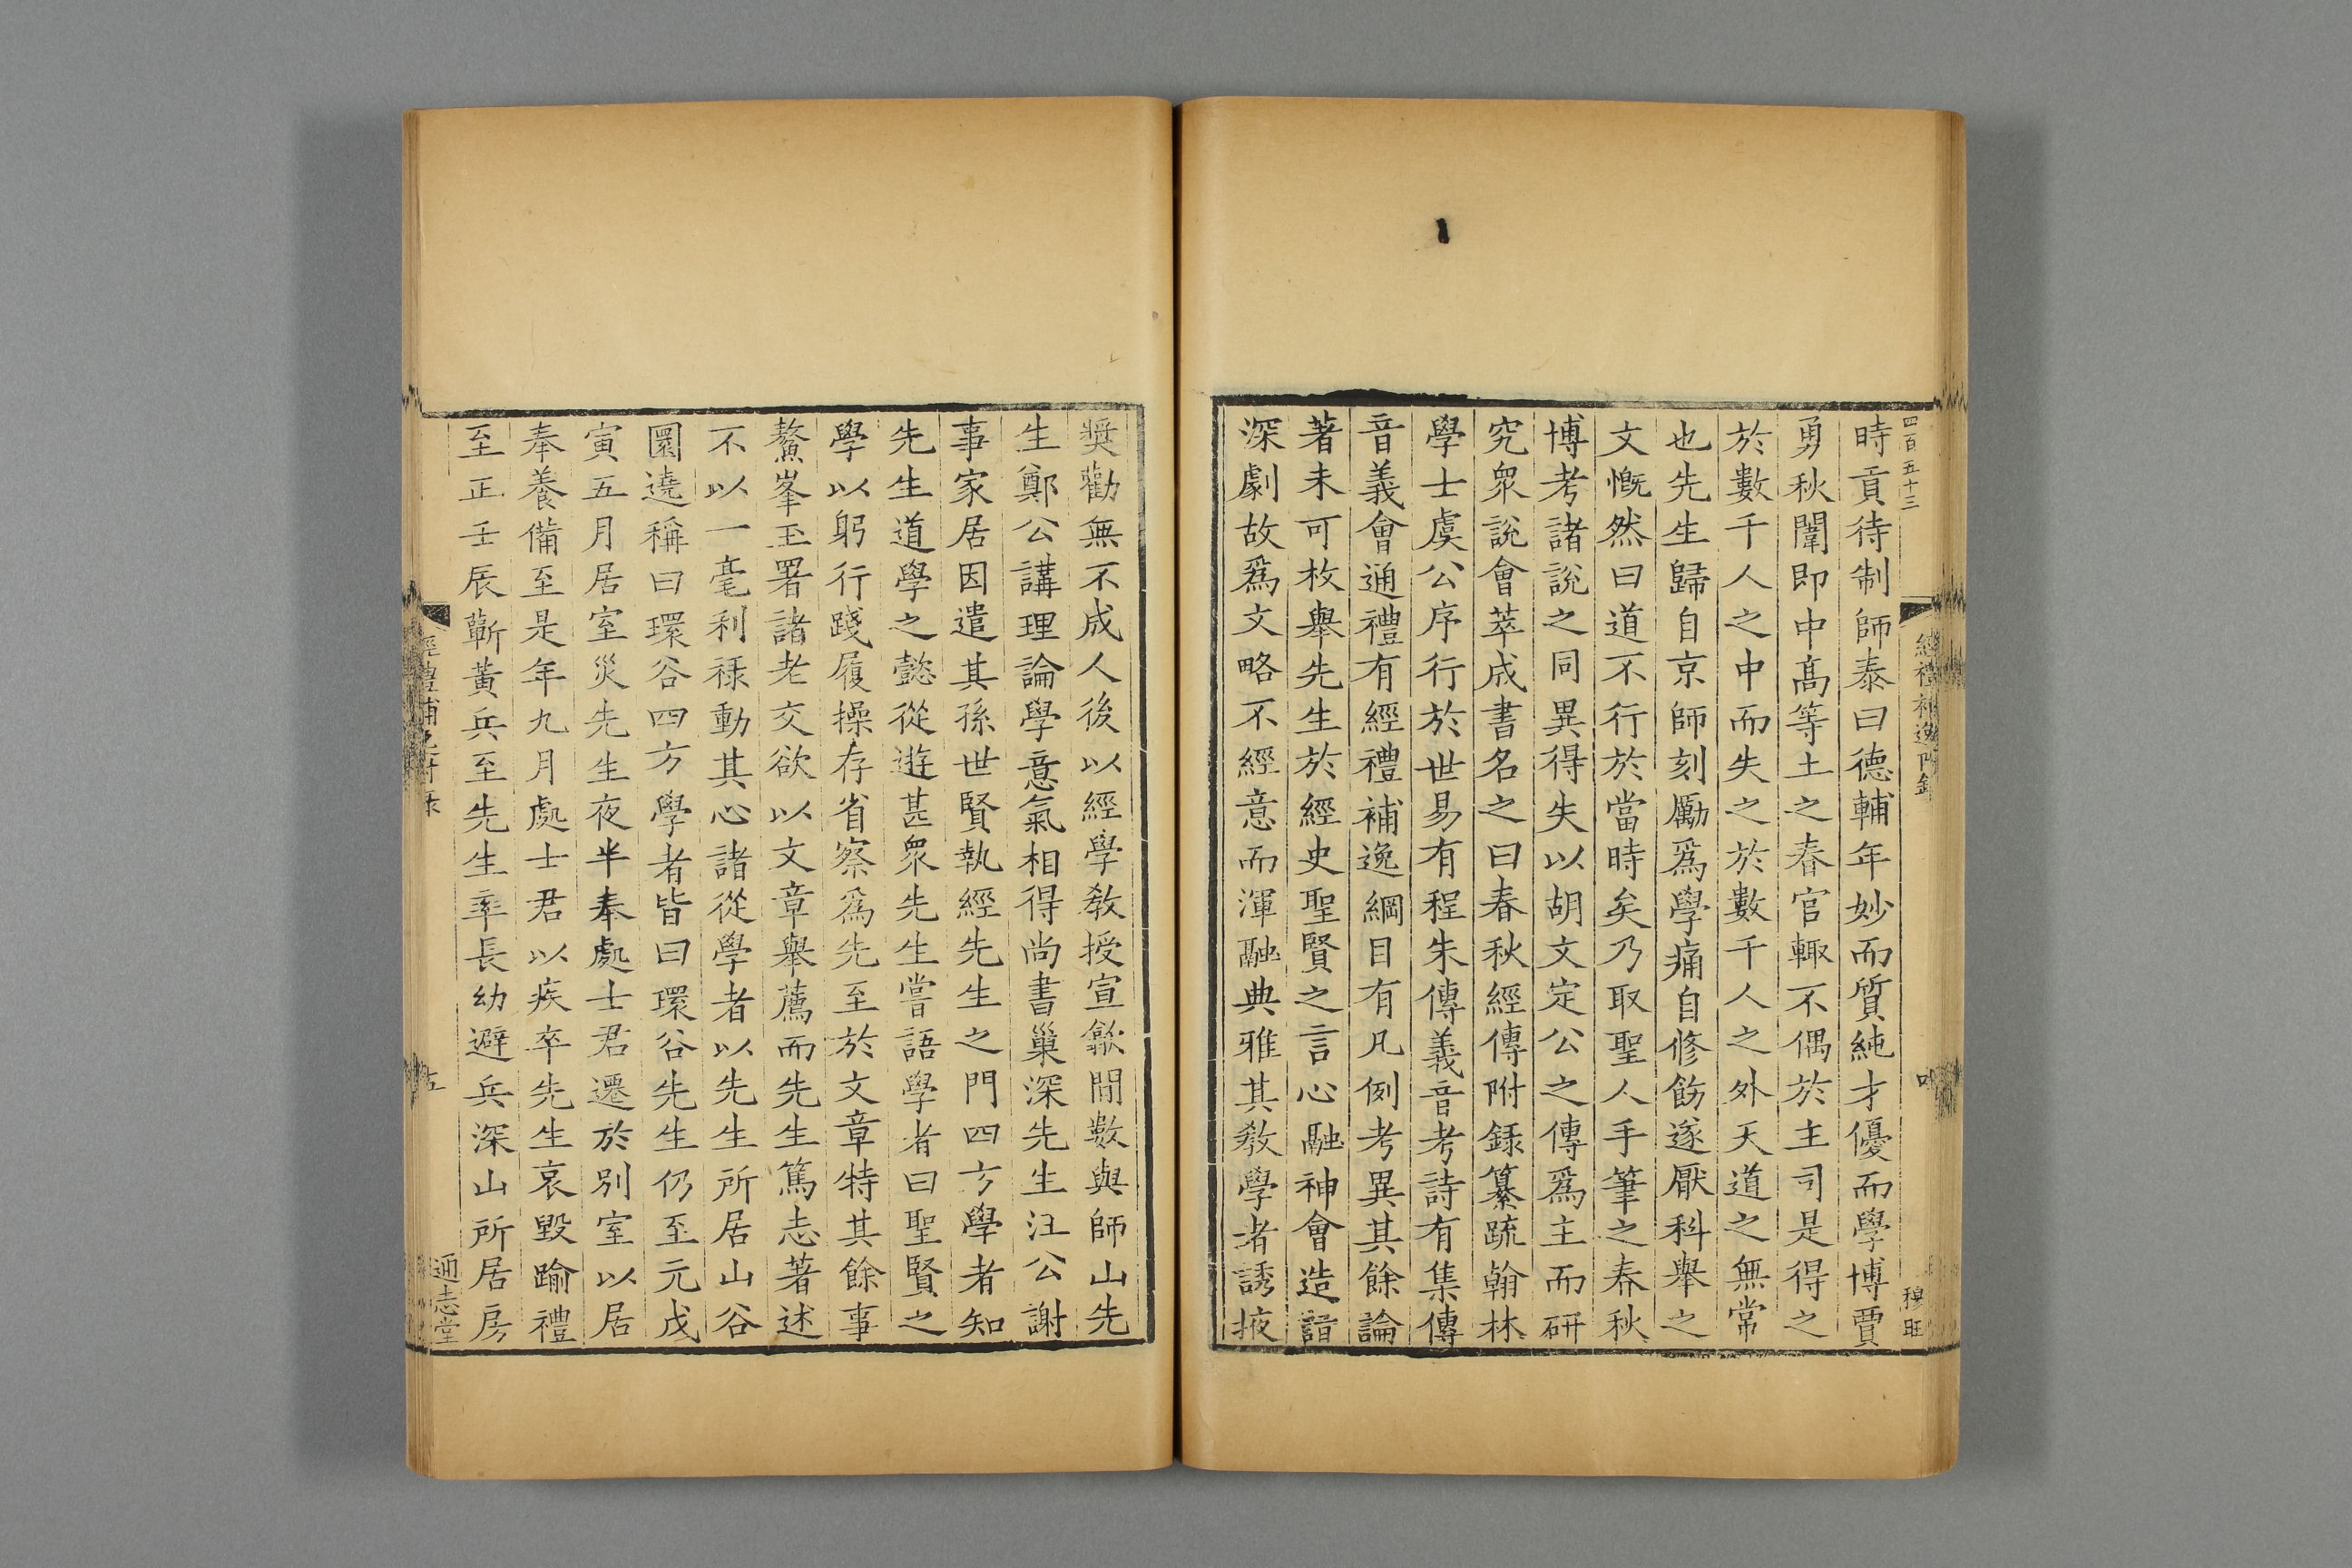 四百五十三
時貢待制師泰曰德輔年妙而質純才優而學博賈
勇秋闈即中髙等土之春官輙不偶於主司是得之
於數千人之中而失之於數千人之外天道之無常
也先生歸自京師刻勵爲學痛自修飭遂厭科舉之
文慨然曰道不行於當時矣乃取聖人手筆之春秋
博考諸說之同異得失以胡文定公之傳爲主而研
究衆說會萃成書名之曰春秋經傳附録纂疏翰林
學士虞公序行於世易有程朱傳義音考詩有集傳
音義會通禮有經禮補逸綱目有凡例考異其餘論
著未可枚舉先生於經史聖賢之言心融神會造詣
深劇故爲文略不經意而渾融典雅其敎學者誘掖
經禮補逸附錄
穆旺
奬勸無不成人後以經學敎授宣歙間數與師山先
生鄭公講理論學意氣相得尚書巢深先生汪公謝
事家居因遣其孫世賢執經先生之門四方學者知
先生道學之懿從遊甚衆先生嘗語學者曰聖賢之
學以躬行踐履操存省察爲先至於文章特其餘事
鰲峯玉署諸老交欲以文章舉薦而先生篤志著述
不以一毫利祿動其心諸從學者以先生所居山谷
圜遶稱曰環谷四方學者皆曰環谷先生仍至元戊
寅五月居室災先生夜半奉處士君遷於別室以居
奉養備至是年九月處士君以疾卒先生哀毀踰禮
至正壬辰蘄黃兵至先生率長幼避兵深山所居房
五
通志堂